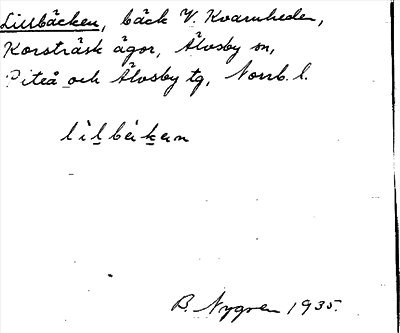 Lillbäcken, bäck V. Kvarnheden,
Korsträsk ägor, Älvsby sn,
Piteå och Älvsby tg, Norrb. l.
B. Nygren 1935.